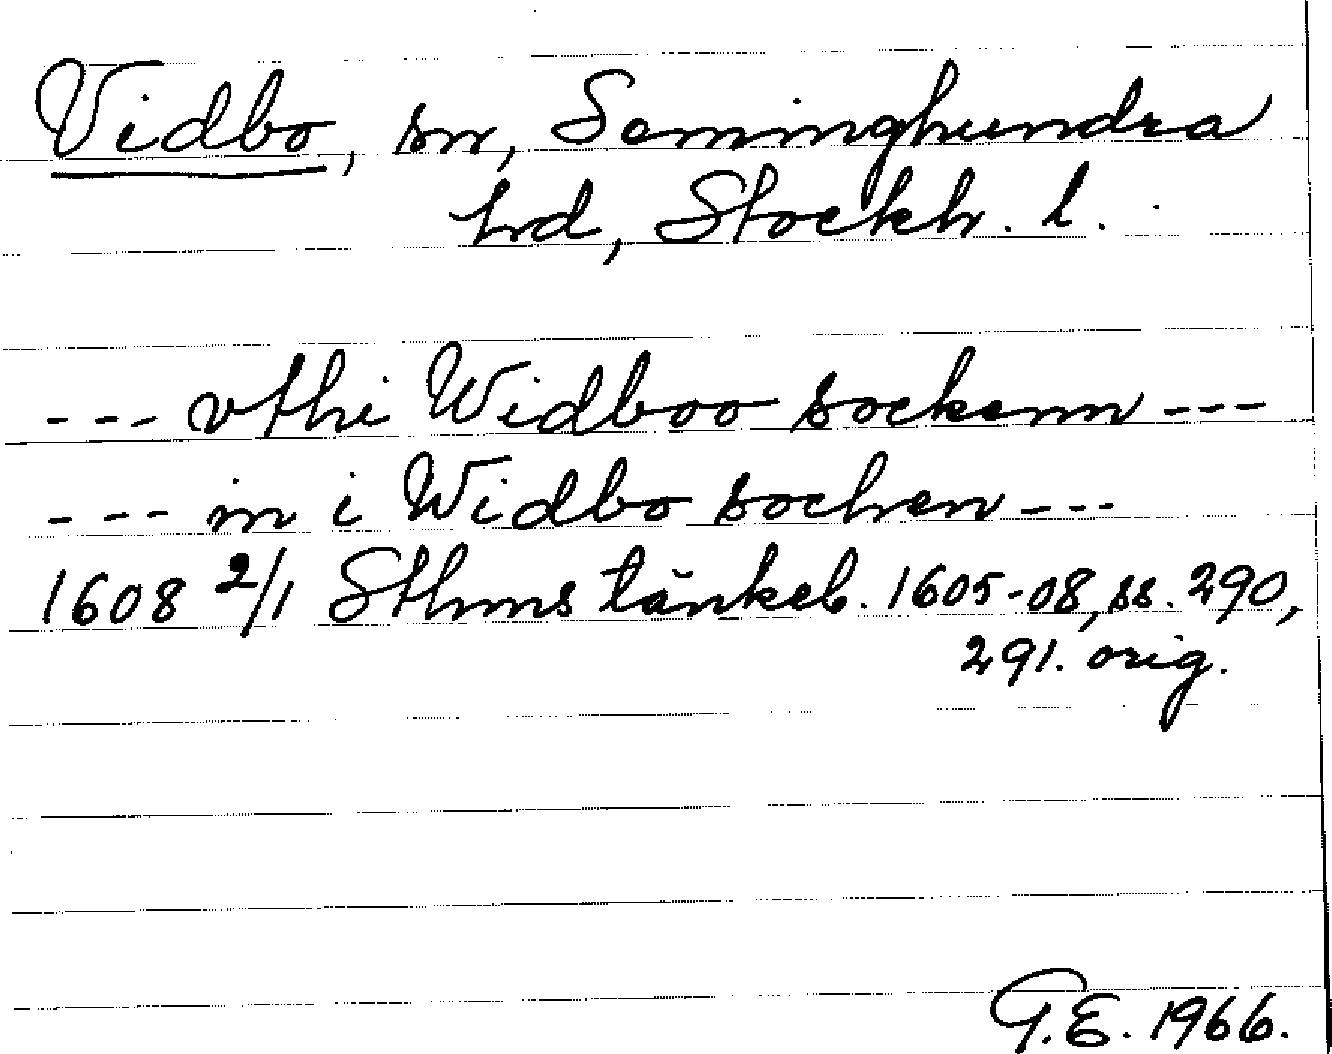 Vidbo, sn, Seminghundra
hd, Stockh. l.
--- vthi Widboo sockenn ---
--- in i Widbo sochen ---
1608 2/1 Sthms tänkeb. 1605-08, ss. 290,
291. orig.
G.E. 1966.